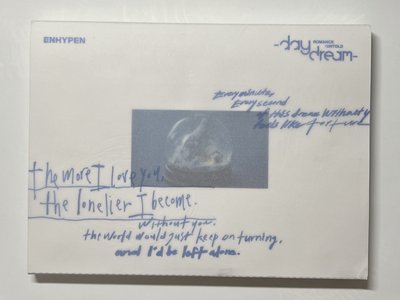 ENHYPEN
ROMANCE : UNTOLD
-daydream-
Every minute,
Every second
of this drama without y
feels like torture
the more I love you,
the lonelier I become.
without you.
the world would just keep on turning.
and I'd be left alone.